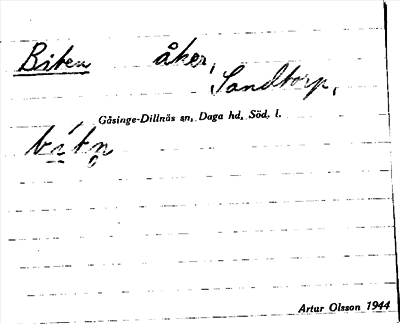 Biten åker,
Sandtorp,
Gåsinge-Dillnäs sn, Daga hd, Söd. l.
Artur Olsson 1944